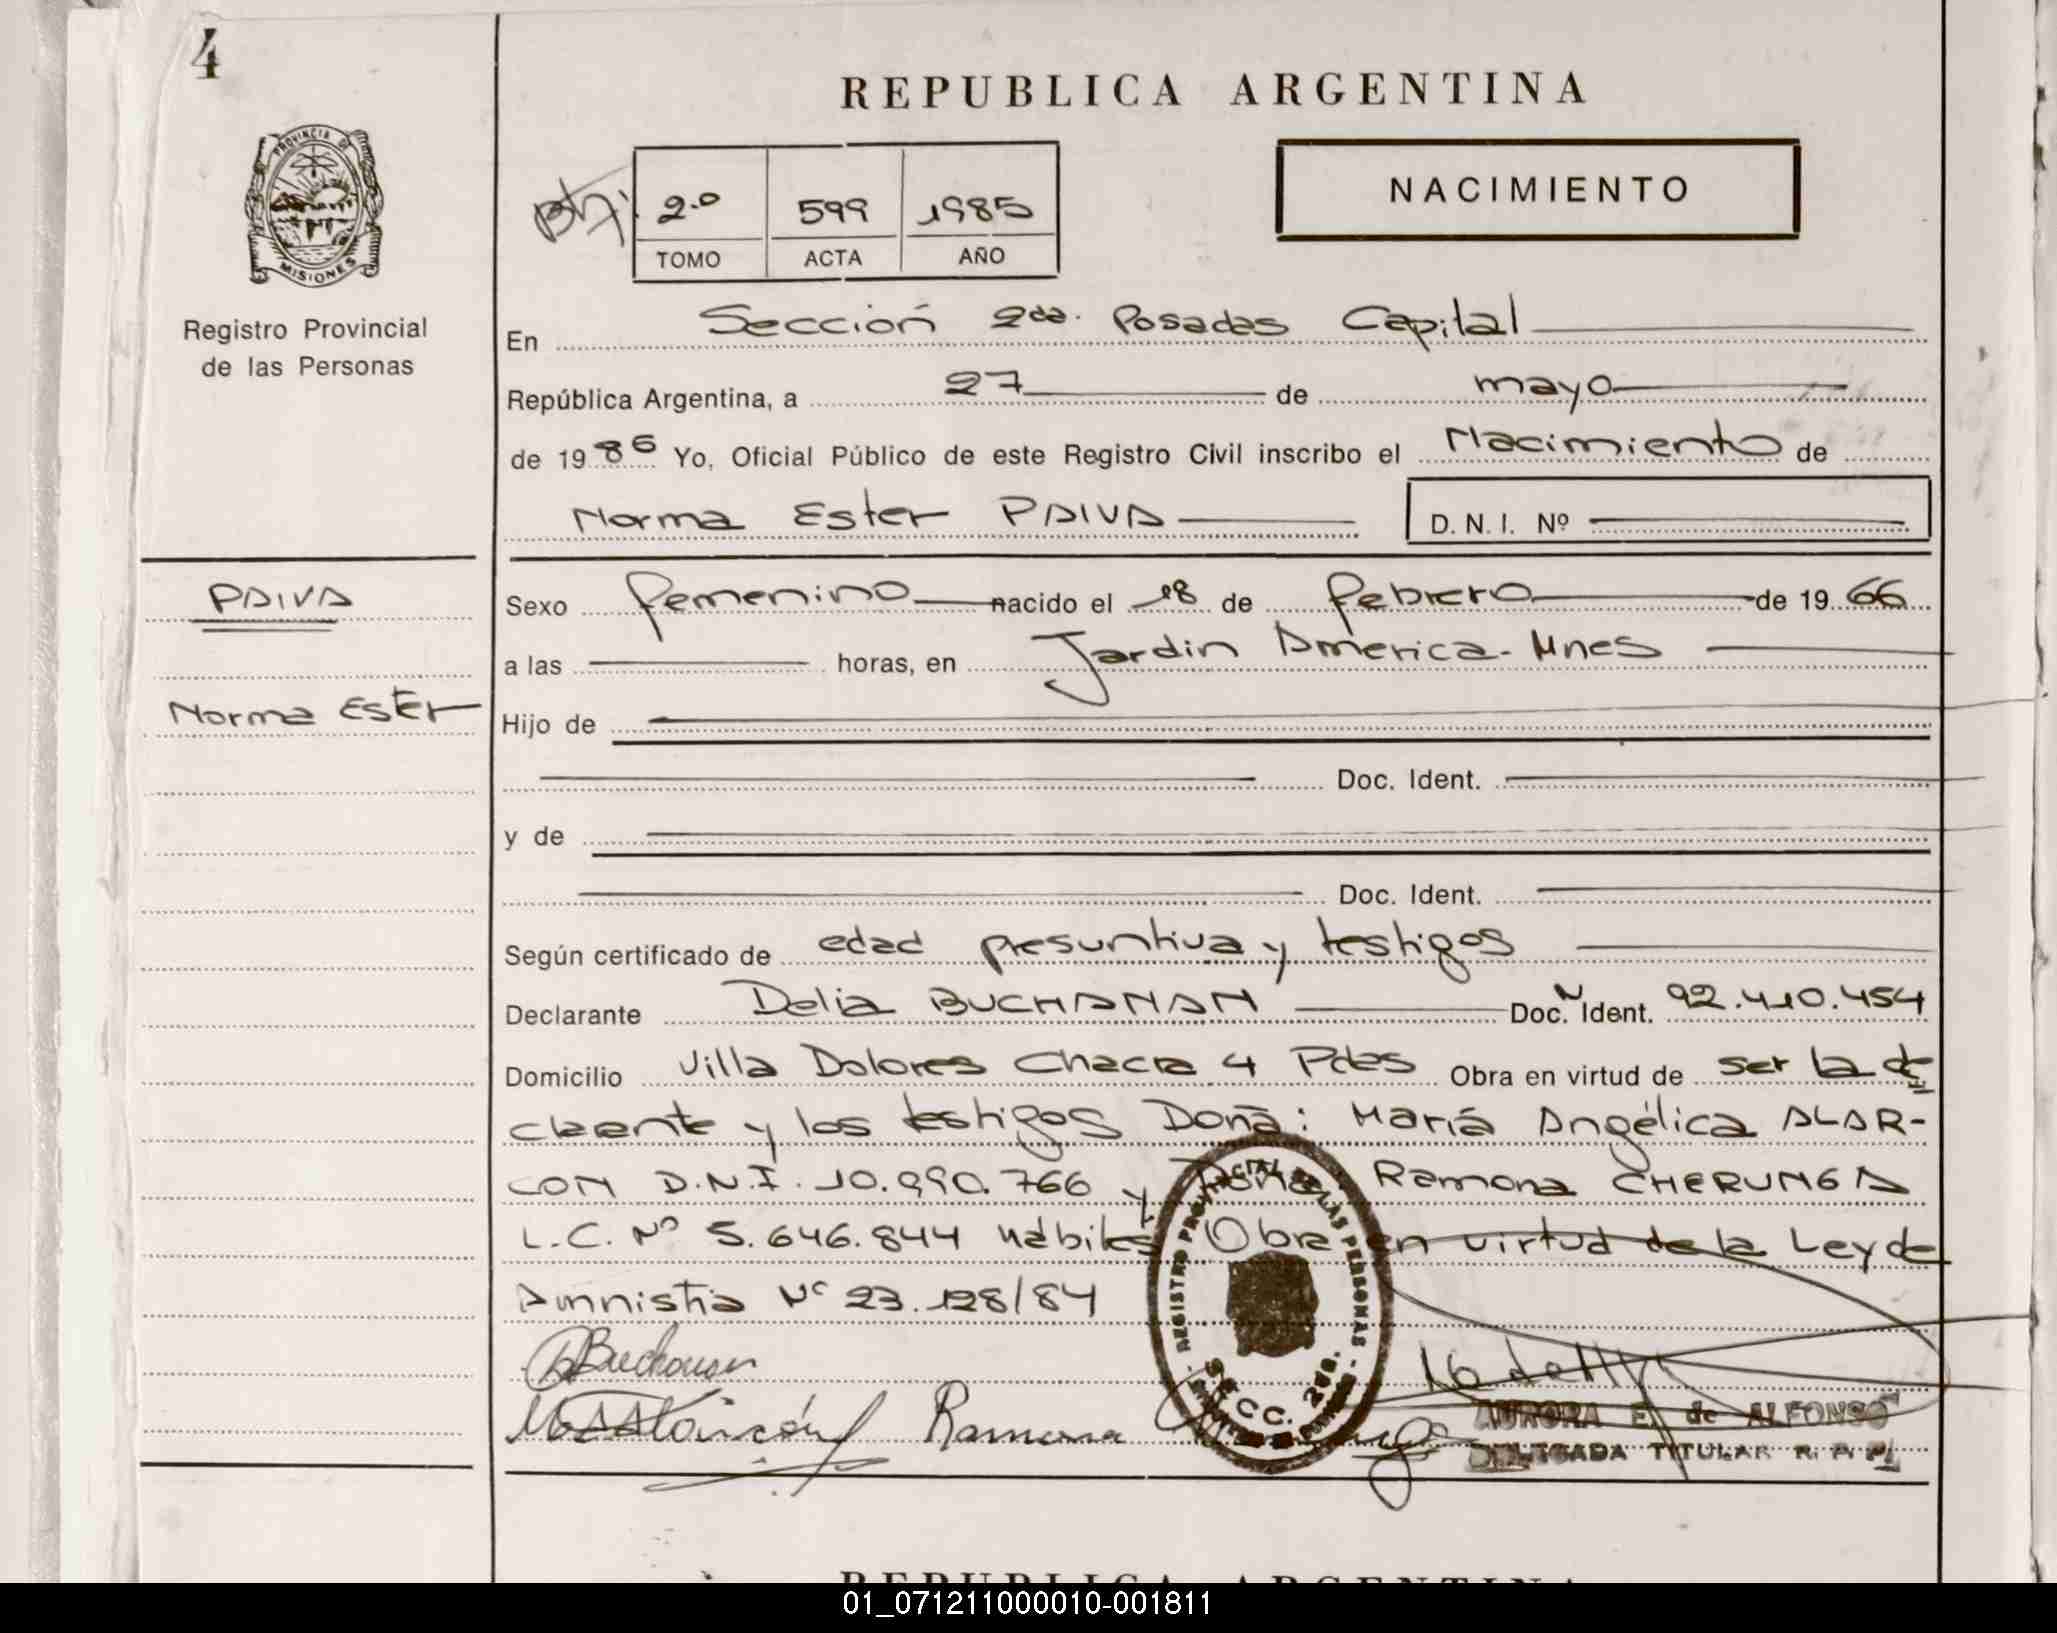 4
REPUBLICA ARGENTINA
PROVINCIA DE
MISIONES
Registro Provincial
de las Personas
2.º 599 1985
TOMO ACTA AÑO
NACIMIENTO
En Sección 2da. Posadas Capital
República Argentina, a 27 de mayo
de 1986 Yo, Oficial Público de este Registro Civil inscribo el Nacimiento de
Norma Ester PAIVA D. N. I. Nº
PAIVA
Norma Ester
Sexo femenino nacido el 18 de febrero de 1966
a las horas, en Jardin America - Mnes
Hijo de
Doc. Ident.
y de
Doc. Ident.
Según certificado de edad presuntiva y testigos
Declarante Delia BUCHANAN Doc. N Ident. 92.410.454
Domicilio Villa Dolores Chacra 4 Pdas Obra en virtud de ser la de
claante y los testigos Doña: María Angélica ALAR-
CON D.N.I. 10.990.766 y Doña Ramona CHERUNGA
L.C. Nº 5.646.844 hábiles Obra en virtud de la Ley de
Amnistia Nº 23.128/84
REGISTRO PROVINCIAL DE LAS PERSONAS
SECC. 2da.
DBuchanan
Ramona
AURORA E. de ALFONSO
DELEGADA TITULAR R. P. P.
REPUBLICA ARGENTINA
01_071211000010-001811